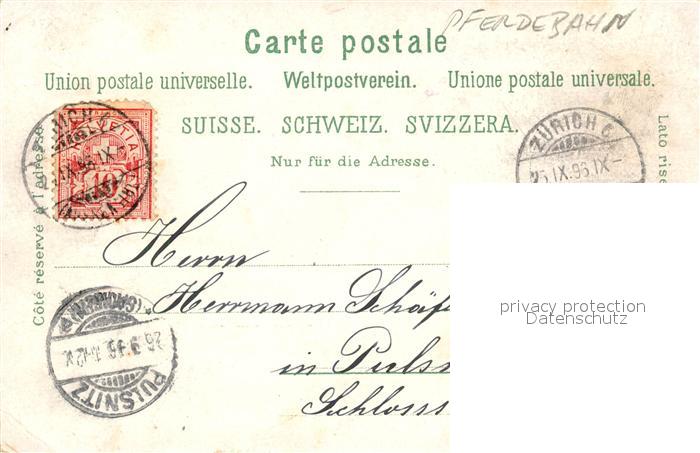 PFERDEBAHN
Carte postale
Union postale universelle. Weltpostverein. Unione postale universale.
SUISSE. SCHWEIZ. SVIZZERA.
Nur für die Adresse.
Côté réservé à l'adresse.
Lato rise
HELVETIA
10
ZÜRICH 6
25.IX.96.IX-
Herrn
Herrmann Schäf
in Pulsn
Schlosss
PULSNITZ
(SACHSEN)
26.9.96
privacy protection
Datenschutz